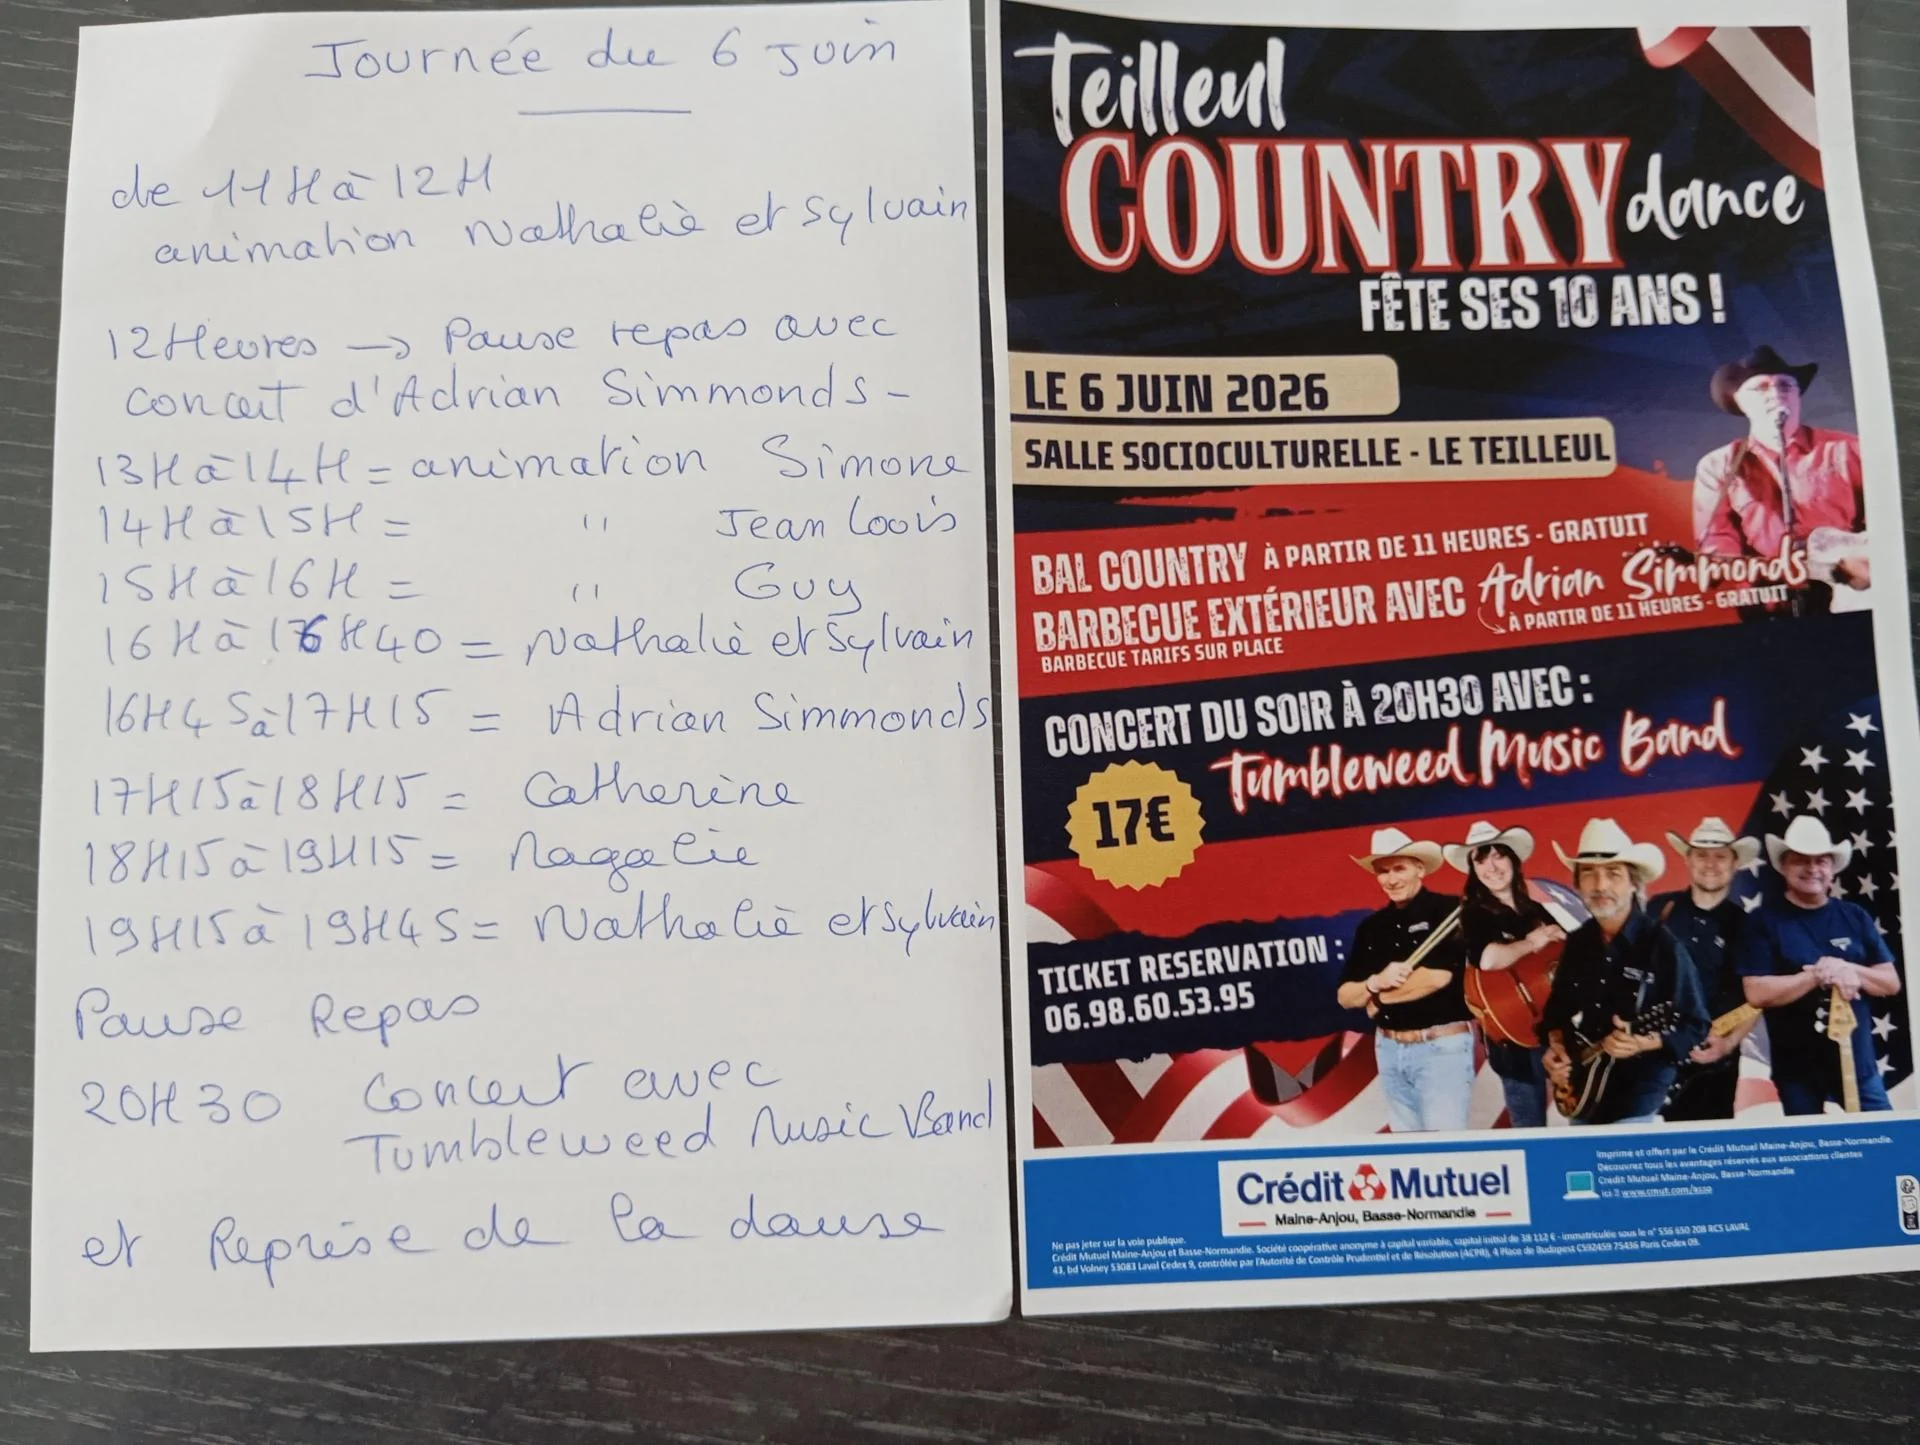 Journée du 6 juin
de 11H à 12H
animation Nathalie et Sylvain
12Heures → Pause repas avec
concert d'Adrian Simmonds -
13H à 14H = animation Simone
14H à 15H = " Jean Louis
15H à 16H = " Guy
16H à 16H40 = Nathalie et Sylvain
16H45 à 17H15 = Adrian Simmonds
17H15 à 18H15 = Catherine
18H15 à 19H15 = Magalie
19H15 à 19H45 = Nathalie et Sylvain
Pause Repas
20H30 Concert avec
Tumbleweed Music Band
et Reprise de la danse
Teilleul
COUNTRY dance
FÊTE SES 10 ANS !
LE 6 JUIN 2026
SALLE SOCIOCULTURELLE - LE TEILLEUL
BAL COUNTRY À PARTIR DE 11 HEURES - GRATUIT
BARBECUE EXTÉRIEUR AVEC Adrian Simmonds
À PARTIR DE 11 HEURES - GRATUIT
BARBECUE TARIFS SUR PLACE
CONCERT DU SOIR À 20H30 AVEC :
Tumbleweed Music Band
17€
TICKET RESERVATION :
06.98.60.53.95
Crédit Mutuel
Maine-Anjou, Basse-Normandie
Imprimé et offert par le Crédit Mutuel Maine-Anjou, Basse-Normandie.
Découvrez tous les avantages réservés aux associations clientes
Crédit Mutuel Maine-Anjou, Basse-Normandie
ici : www.cmut.com/asso
Ne pas jeter sur la voie publique.
Crédit Mutuel Maine-Anjou et Basse-Normandie. Société coopérative anonyme à capital variable, capital initial de 38 112 € - immatriculée sous le n° 556 650 208 RCS LAVAL
43, bd Volney 53083 Laval Cedex 9, contrôlée par l'Autorité de Contrôle Prudentiel et de Résolution (ACPR), 4 Place de Budapest CS92459 75436 Paris Cedex 09.